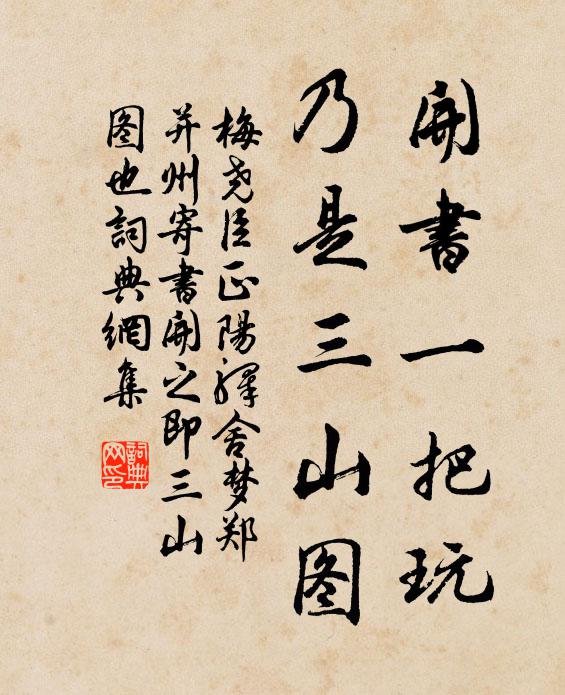 開書一把玩
乃是三山图
梅尧臣正陽驛舍梦郑
并州寄書開之即三山
图也詞典網集
詞典网印